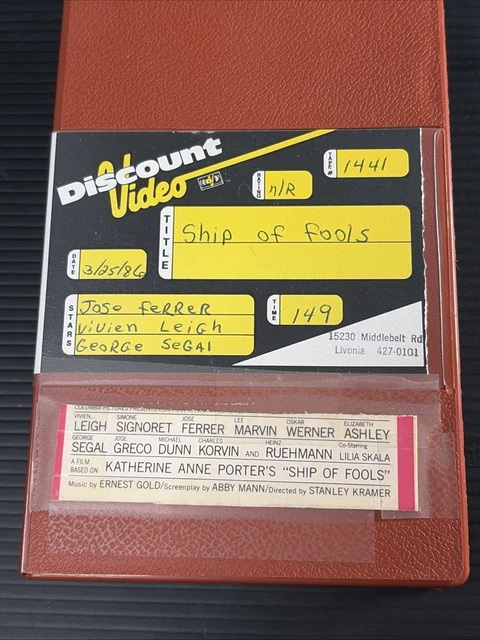 Discount
Video
RATING
n/R
TAPE#
1441
TITLE
Ship of fools
DATE
3/25/86
STARS
Jose feRReR
Vivien Leigh
George Segal
TIME
149
15230 Middlebelt Rd
Livonia 427-0101
COLUMBIA PICTURES PRESENTS
VIVIEN SIMONE JOSE LEE OSKAR ELIZABETH
LEIGH SIGNORET FERRER MARVIN WERNER ASHLEY
GEORGE JOSE MICHAEL CHARLES HEINZ Co-Starring
SEGAL GRECO DUNN KORVIN AND RUEHMANN LILIA SKALA
A FILM
BASED ON KATHERINE ANNE PORTER'S "SHIP OF FOOLS"
Music by ERNEST GOLD/Screenplay by ABBY MANN/Directed by STANLEY KRAMER